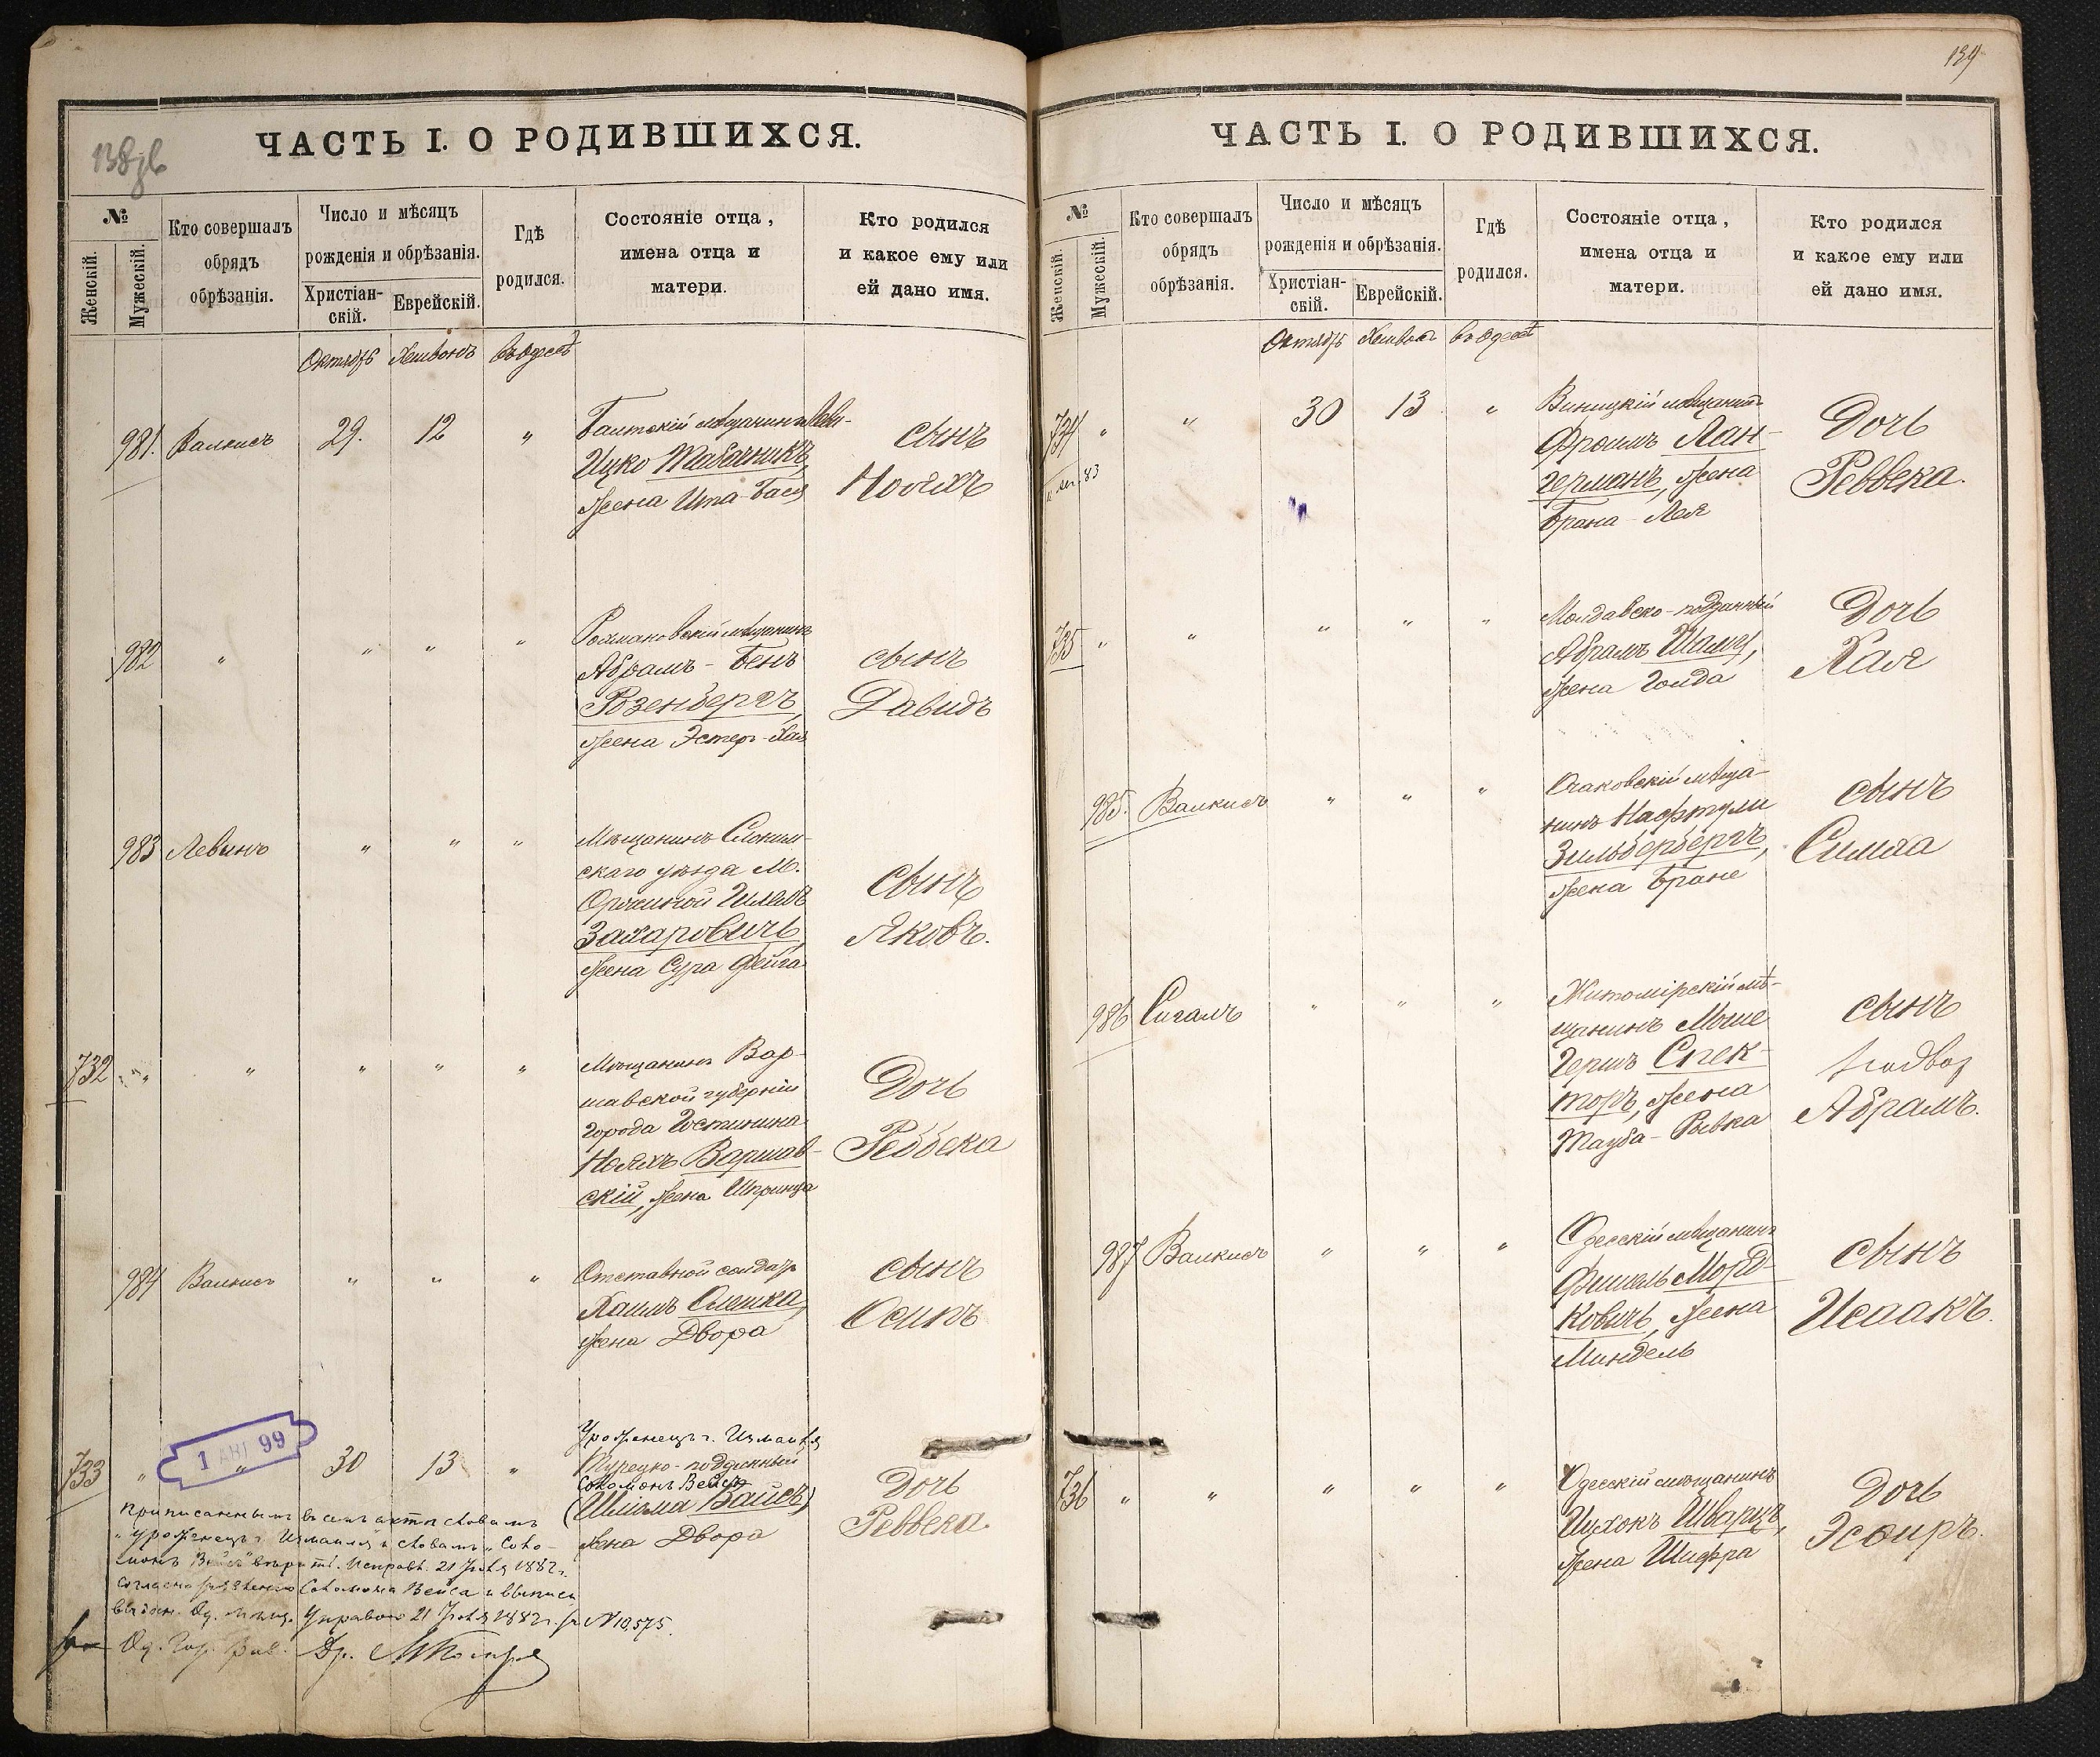 138 об
ЧАСТЬ I. О РОДИВШИХСЯ.
№
Женскій.
Мужескій.
Кто совершалъ
обрядъ
обрѣзанія.
Число и мѣсяцъ
рожденія и обрѣзанія.
Христіан-
скій.
Еврейскій.
Гдѣ
родился.
Состояніе отца,
имена отца и
матери.
Кто родился
и какое ему или
ей дано имя.
Октябрь Хешвонъ въ Одессѣ
981. Валкисъ 29. 12 "
Балтскій мѣщанинъ
Ицко Табачникъ,
жена Ита-Бася
сынъ
Ноахъ
982 " " " "
Романовскій мѣщанинъ
Абрамъ-Бенъ
Розенбергъ,
жена Эстер-Хая
сынъ
Давидъ
983 Левинъ " " "
Мѣщанинъ Слоним-
скаго уѣзда М.
Захаровичъ
жена Сура Фейга
сынъ
Яковъ.
732 " " " " "
Мѣщанинъ Вар-
шавской губерніи
города Гостинина
Нояхъ Варшав-
скій, жена Шпринца
Дочь
Реввека
984 Валкисъ " " "
Отставной солдатъ
Хаимъ Слешка,
жена Двора
сынъ
Осипъ
1 АВГ 99
733 " " 30 13 "
Уроженецъ г. Измаила
Турецко-подданный
Соломонъ Вейсъ
(Шліома Вайсъ)
жена Двора
Дочь
Реввека.
Приписаннымъ въ семъ актѣ словамъ
"уроженецъ г. Измаила" и словамъ "Соло-
монъ Вейсъ" вѣрить. Исправл. 21 Іюля 1882 г.
согласно Соломона Вейса и выписи
выдан. Од. мѣщ. Управою 21 Іюля 1882 г. за № 10,575.
Од. Гор. Рав. Др.
134
ЧАСТЬ I. О РОДИВШИХСЯ.
№
Женскій.
Мужескій.
Кто совершалъ
обрядъ
обрѣзанія.
Число и мѣсяцъ
рожденія и обрѣзанія.
Христіан-
скій.
Еврейскій.
Гдѣ
родился.
Состояніе отца,
имена отца и
матери.
Кто родился
и какое ему или
ей дано имя.
Октябрь Хешвонъ въ Одессѣ
734 " " 30 13 "
Виницкій мѣщанинъ
Фроимъ Лан-
германъ, жена
Брана-Лея
Дочь
Реввека.
735 " " " " "
Молдавско-подданный
Абрамъ
жена Голда
Дочь
Хая
985. Валкисъ " " "
Очаковскій мѣща-
нинъ Нафтули
Зильбербергъ,
жена Бране
сынъ
Симха
986 Сигалъ " " "
Житомірскій мѣ-
щанинъ Моше
Гершъ Спек-
торъ, жена
Тауба-Рывка
сынъ
Абрамъ.
987 Валкисъ " " "
Одесскій мѣщанинъ
Фишель Морд-
ковичъ, жена
Миндель
сынъ
Исаакъ.
736 " " " " "
Одесскій мѣщанинъ
Ицхокъ Шварцъ,
жена Шифра
Дочь
Эсѳиръ.